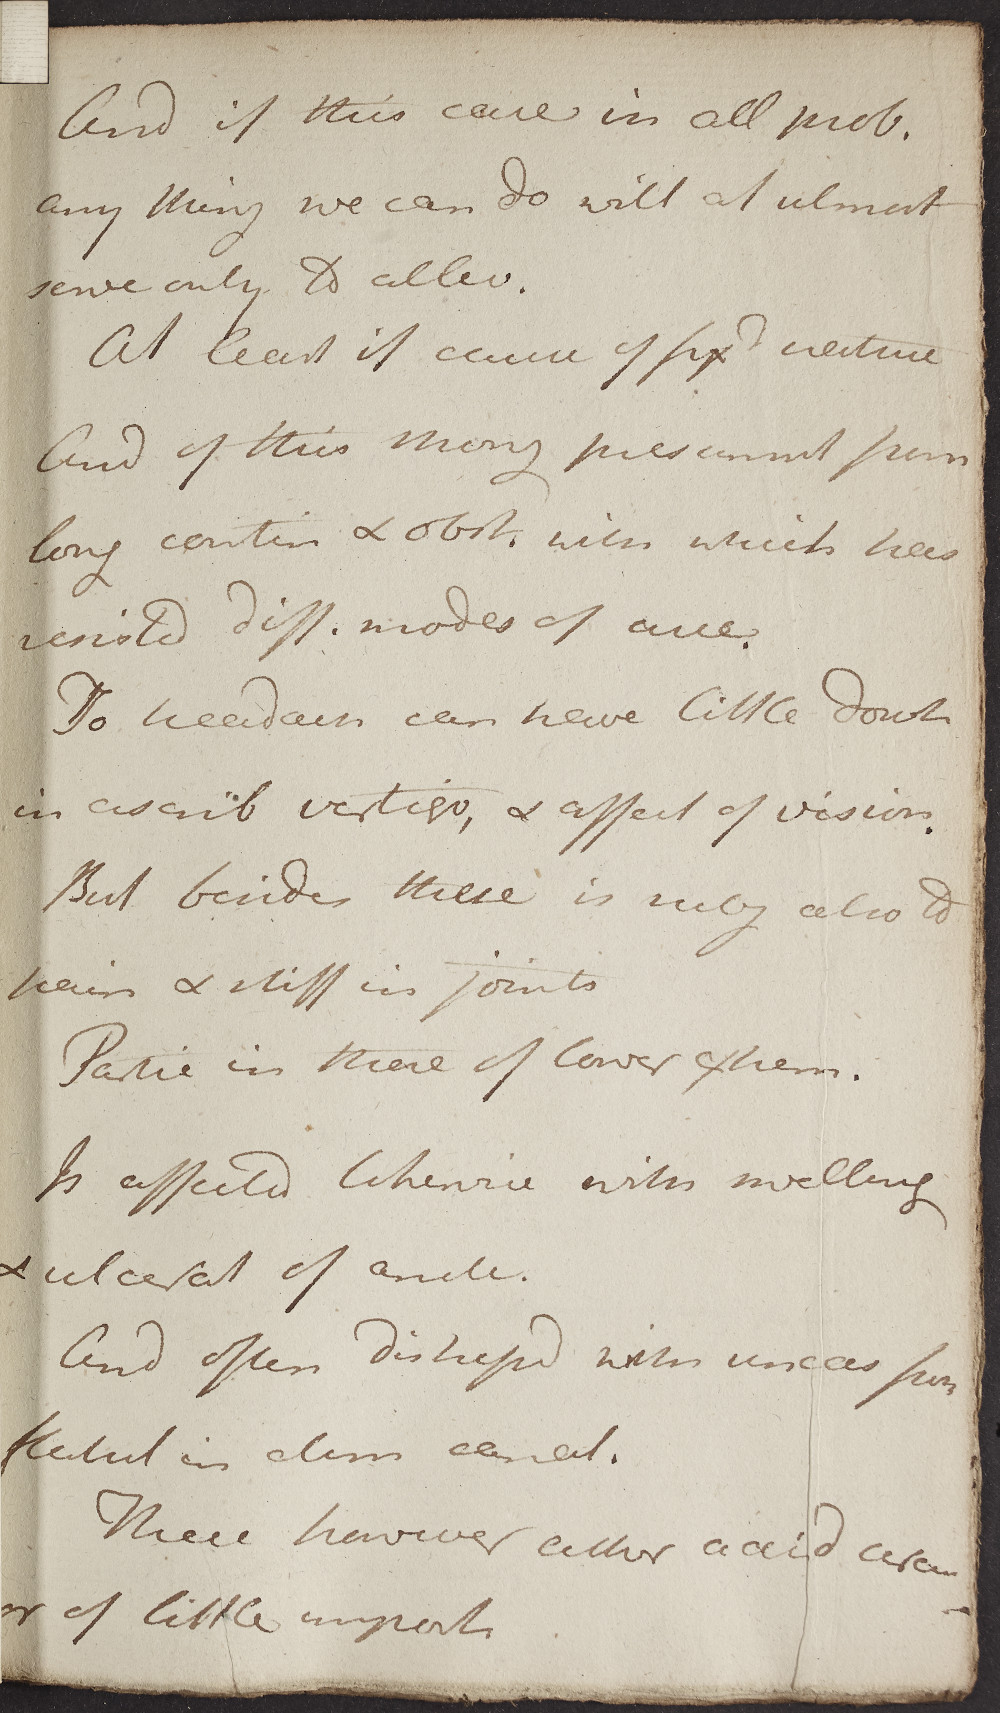 And if this case in all prob.
any thing we can do will at utmost
serve only to allev.
At least if cause of fix'd nature
And of this strong presumpt from
long contin & obst. with which has
resisted diff. modes of cure.
To headach can have little doubt
in ascrib vertigo, & affect of vision.
But besides these is subj also to
pain & stiff in joints
Partic in these of lower extrem.
Is affected likewise with swelling
& ulcerat of ancle.
And often distress'd with uneas from
flatul in alim canal.
These however either accid
or of little import